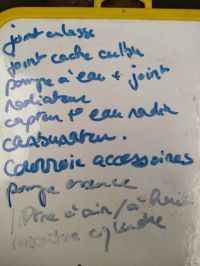 joint culasse
joint cache culbu
pompe à eau + joint
radiateur
capteur t° eau radia
carburateur.
Courroie accessoires
pompe essence
filtre à air / à huile
cylindre